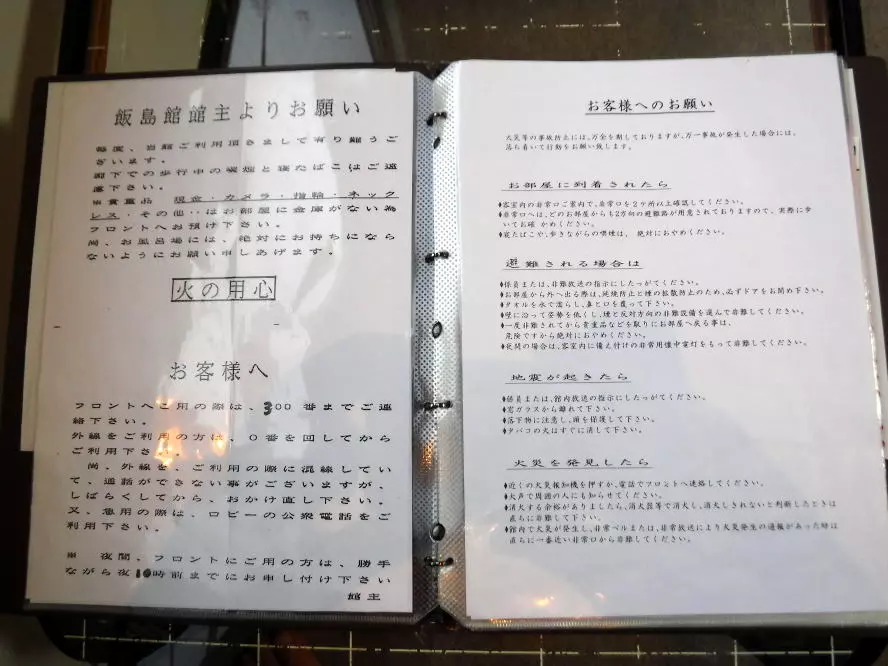 飯島館館主よりお願い
毎度、当館ご利用頂きまして有り難うご
ざいます。
廊下での歩行中の喫煙と寝たばこはご遠
慮下さい。
※貴重品　現金・カメラ・指輪・ネック
レス・その他‥はお部屋に金庫がない為
フロントへお預け下さい。
尚、お風呂場には、絶対にお持ちになら
ないようにお願い申しあげます。
火の用心
お客様へ
フロントへご用の際は、300番までご連
絡下さい。
外線をご利用の方は、0番を回してから
ご利用下さい。
尚、外線を、ご利用の際に混線してい
て、通話ができない事がございますが、
しばらくしてから、おかけ直し下さい。
又、急用の際は、ロビーの公衆電話をご
利用下さい。
※　夜間、フロントにご用の方は、勝手
ながら夜10時前までにお申し付け下さい
館主
お客様へのお願い
火災等の事故防止には、万全を期しておりますが、万一事故が発生した場合には、
落ち着いて行動をお願い致します。
お部屋に到着されたら
♦客室内の非常口ご案内で、非常口を2ヶ所以上確認してください。
♦非常口へは、どのお部屋からも2方向の避難路が用意されておりますので、実際に歩
いてお確かめください。
♦寝たばこや、歩きながらの喫煙は、絶対におやめください。
避難される場合は
♦係員または、非難放送の指示にしたっがてください。
♦お部屋から外へ出る際は、延焼防止と煙の拡散防止のため、必ずドアをお閉め下さい。
♦タオルを水で濡らし、鼻と口を覆って下さい。
♦壁に沿って姿勢を低くし、煙と反対方向の非難設備を選んで非難してください。
♦一度非難されてから貴重品などを取りにお部屋へ戻る事は、
危険ですから絶対におやめください。
♦夜間の場合は、客室内に備え付けの非常用懐中電灯をもって非難してください。
地震が起きたら
♦係員または、館内放送の指示にしたっがてください。
♦窓ガラスから離れて下さい。
♦落下物に注意し、頭を保護して下さい。
♦タバコの火はすぐに消して下さい。
火災を発見したら
♦近くの火災報知機を押すか、電話でフロントへ連絡してください。
♦大声で周囲の人にも知らせてください。
♦消火する余裕がありましたら、消火器等で消火し、消火しきれないと判断したときは
直ちに非難して下さい。
♦館内で火災が発生し、非常ベルまたは、非常放送により火災発生の通報があった時は
直ちに一番近い非常口から非難してください。